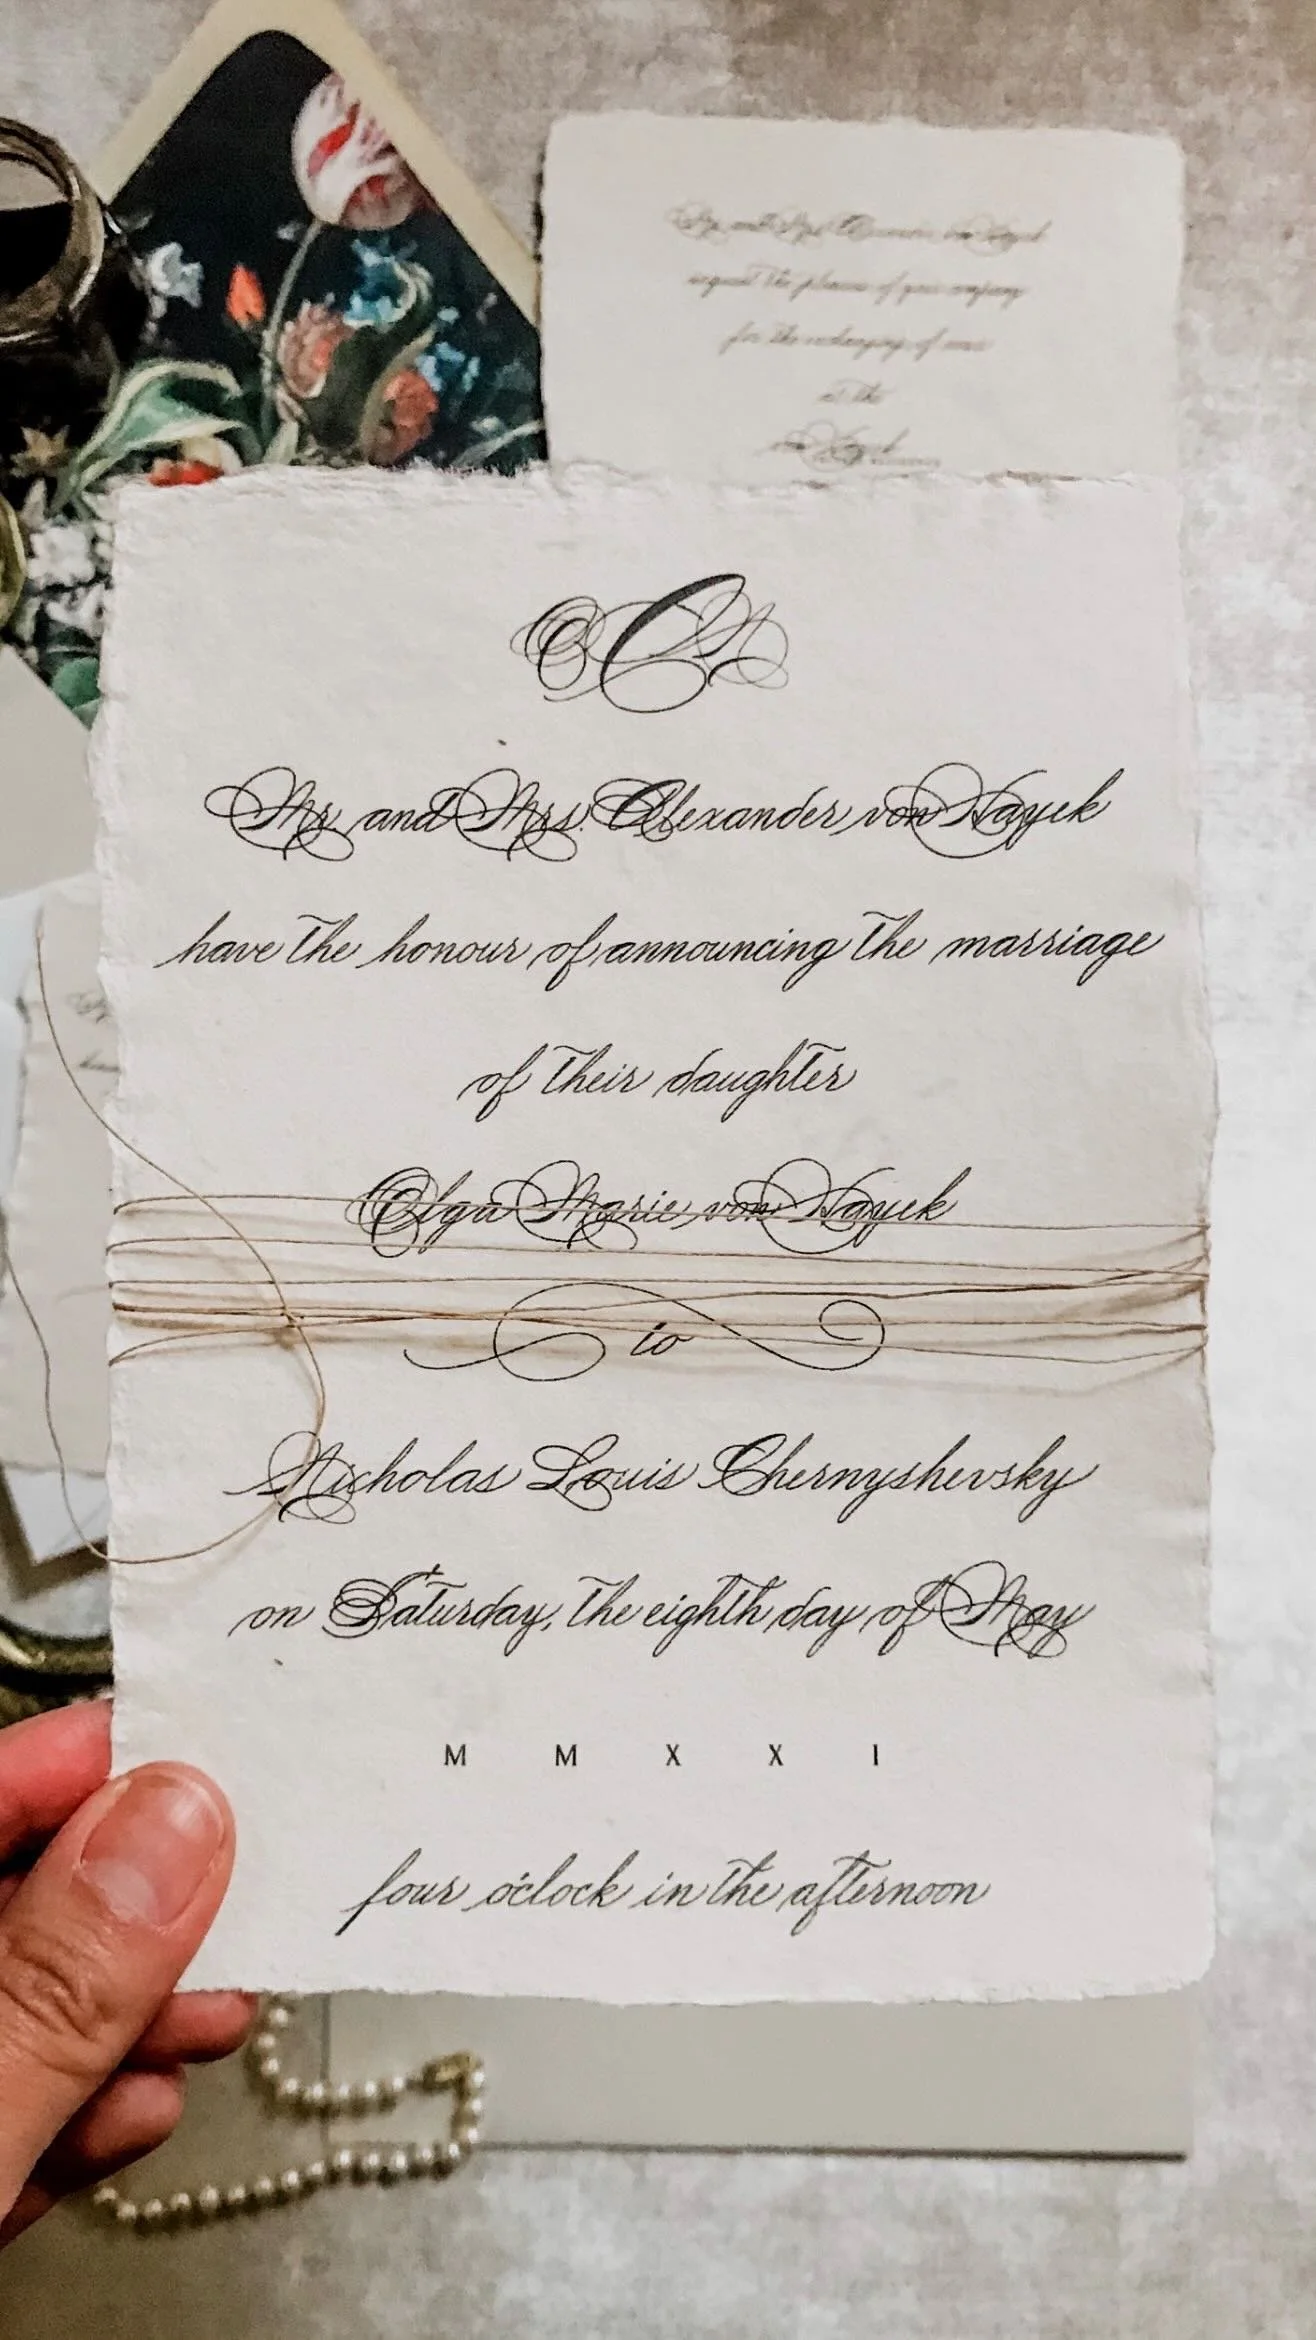 Mr and Mrs.
request the pleasure of your company
for the exchanging of vows
at the
von Hayek
Mr. and Mrs. Alexander von Hayek
have the honour of announcing the marriage
of their daughter
Olga Marie von Hayek
to
Nicholas Louis Chernyshevsky
on Saturday, the eighth day of May
M M X X I
four o'clock in the afternoon